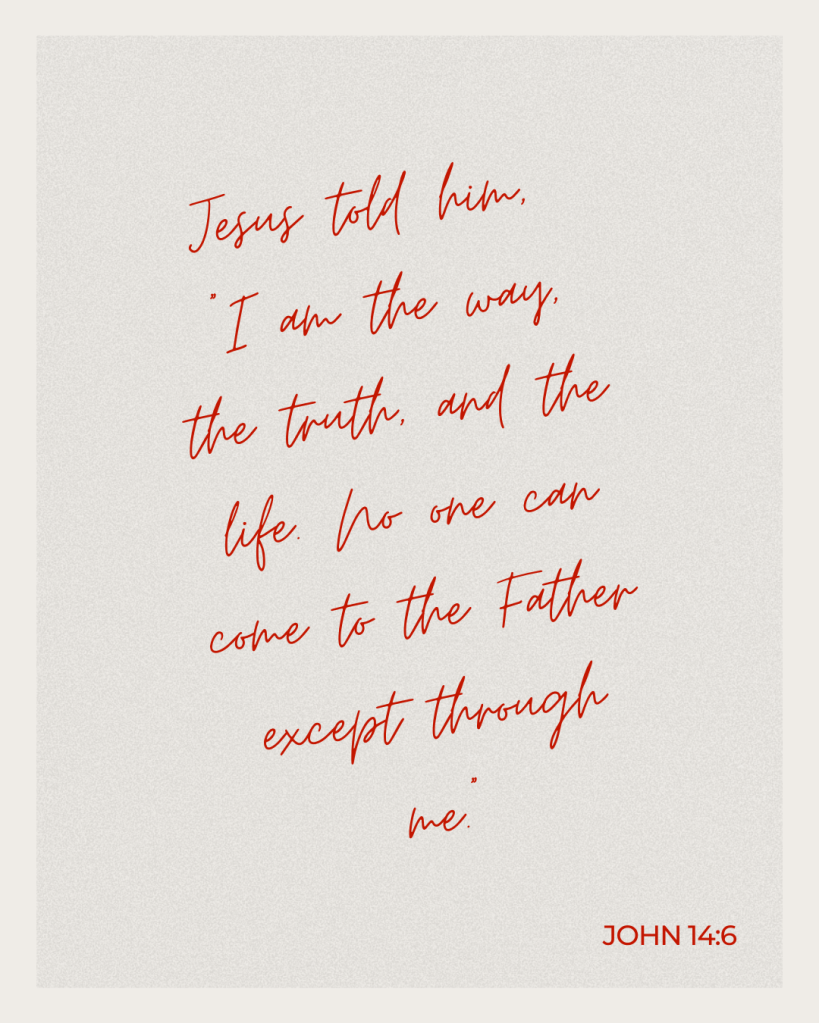 Jesus told him,
"I am the way,
the truth, and the
life. No one can
come to the Father
except through
me."
JOHN 14:6